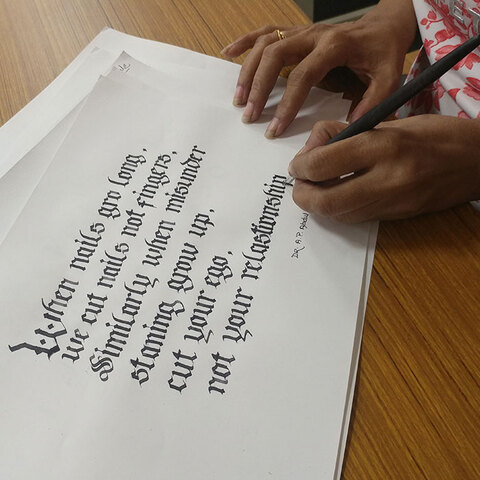 When nails gro long,
we cut nails not fingers,
Similarly when misunder
staning grow up,
cut your ego,
not your relastionship
DR. A. P. Abdul